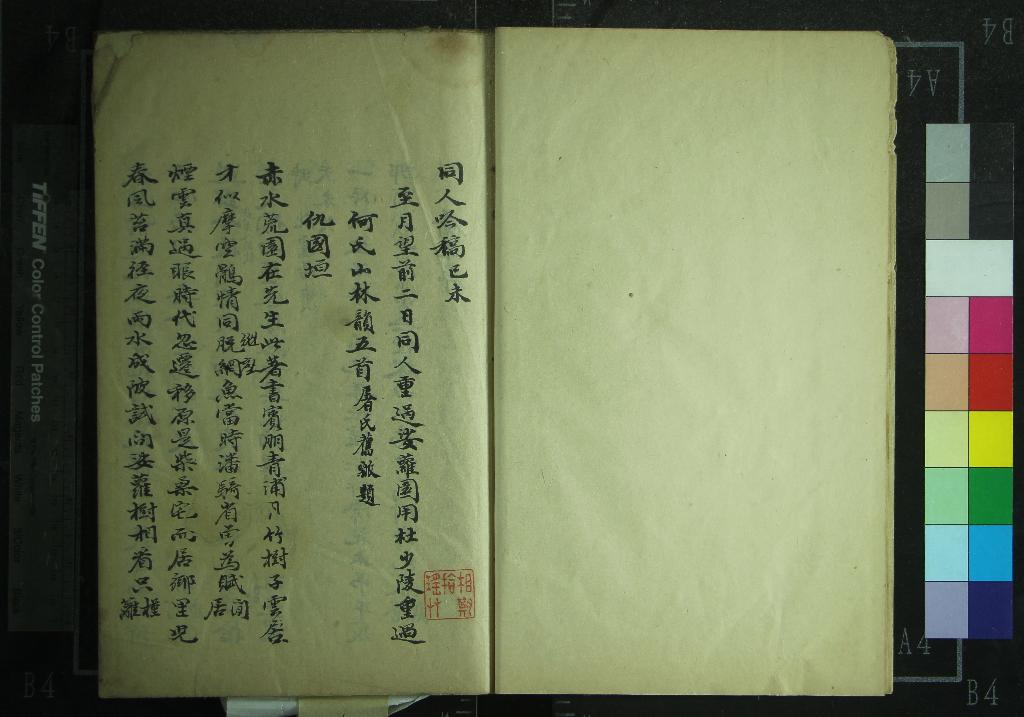 同人吟稿己未
至月望前二日同人重過娑蘿園用杜少陵重過
何氏山林韻五首屠氏舊
題
仇國垣
赤水荒園在先生此著書賓朋青浦月竹樹子雲居
才似摩空鶻情同脫網魚當時潘騎省曾為賦閒居
煙雲真過眼時代忽遷移原是柴桑宅而居鄉里兒
春風苔滿徑夜雨水成池試問娑蘿樹相看只槿籬
TIFFEN Color Control Patches
A4
B4